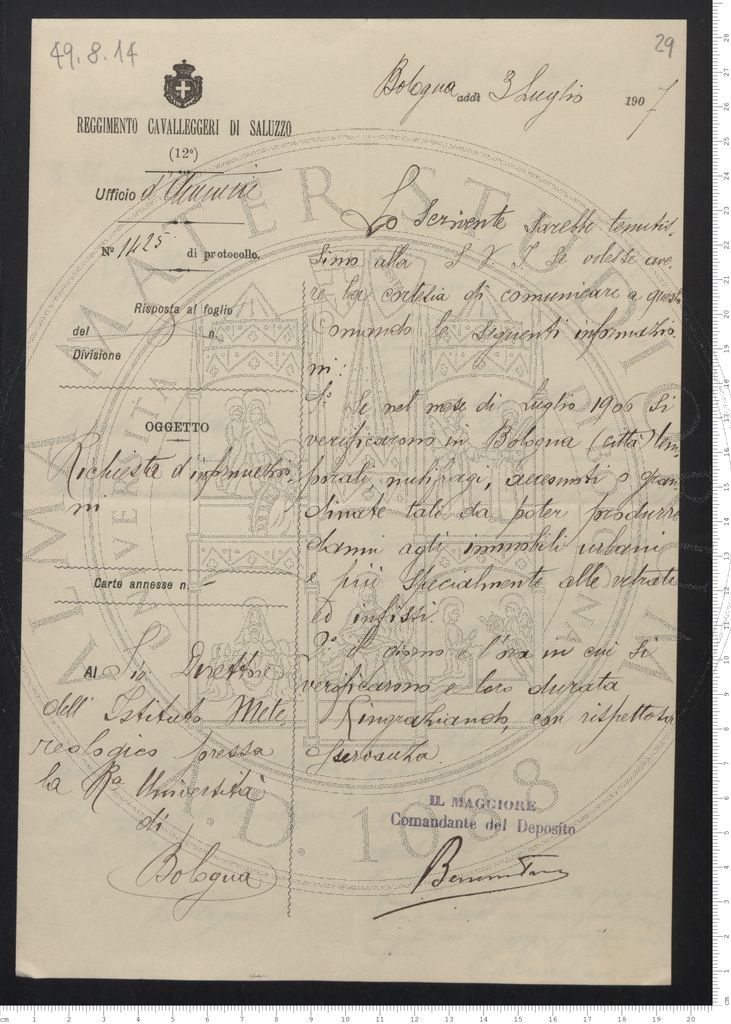 49.8.14
29
Bologna addì 3 Luglio 1907
REGGIMENTO CAVALLEGGERI DI SALUZZO
(12°)
Ufficio
N° 1425 di protocollo.
Risposta al foglio
del n.
Divisione
OGGETTO
Richiesta d'informazio-
ni
Carte annesse n. –
Al Sig Direttore
dell' Istituto Mete
reologico presso
la Ra Università
di
Bologna
Lo scrivente sarebbe tenutis-
simo alla S. V. I. se volesse ave-
re la cortesia di comunicare a questo
Comando le seguenti informazio-
ni:
1° Se nel mese di Luglio 1906 si
verificarono in Bologna (città) tem-
porali nubifragi, o gran-
dinate tali da poter produrre
danni agli immobili urbani
e più specialmente alle vetrate
ed infissi.
2° il giorno e l'ora in cui si
verificarono e loro durata
Ringraziando, con rispettosa
osservanza.
IL MAGGIORE
Comandante del Deposito
ALMA MATER STUDIORUM
A.D. 1088